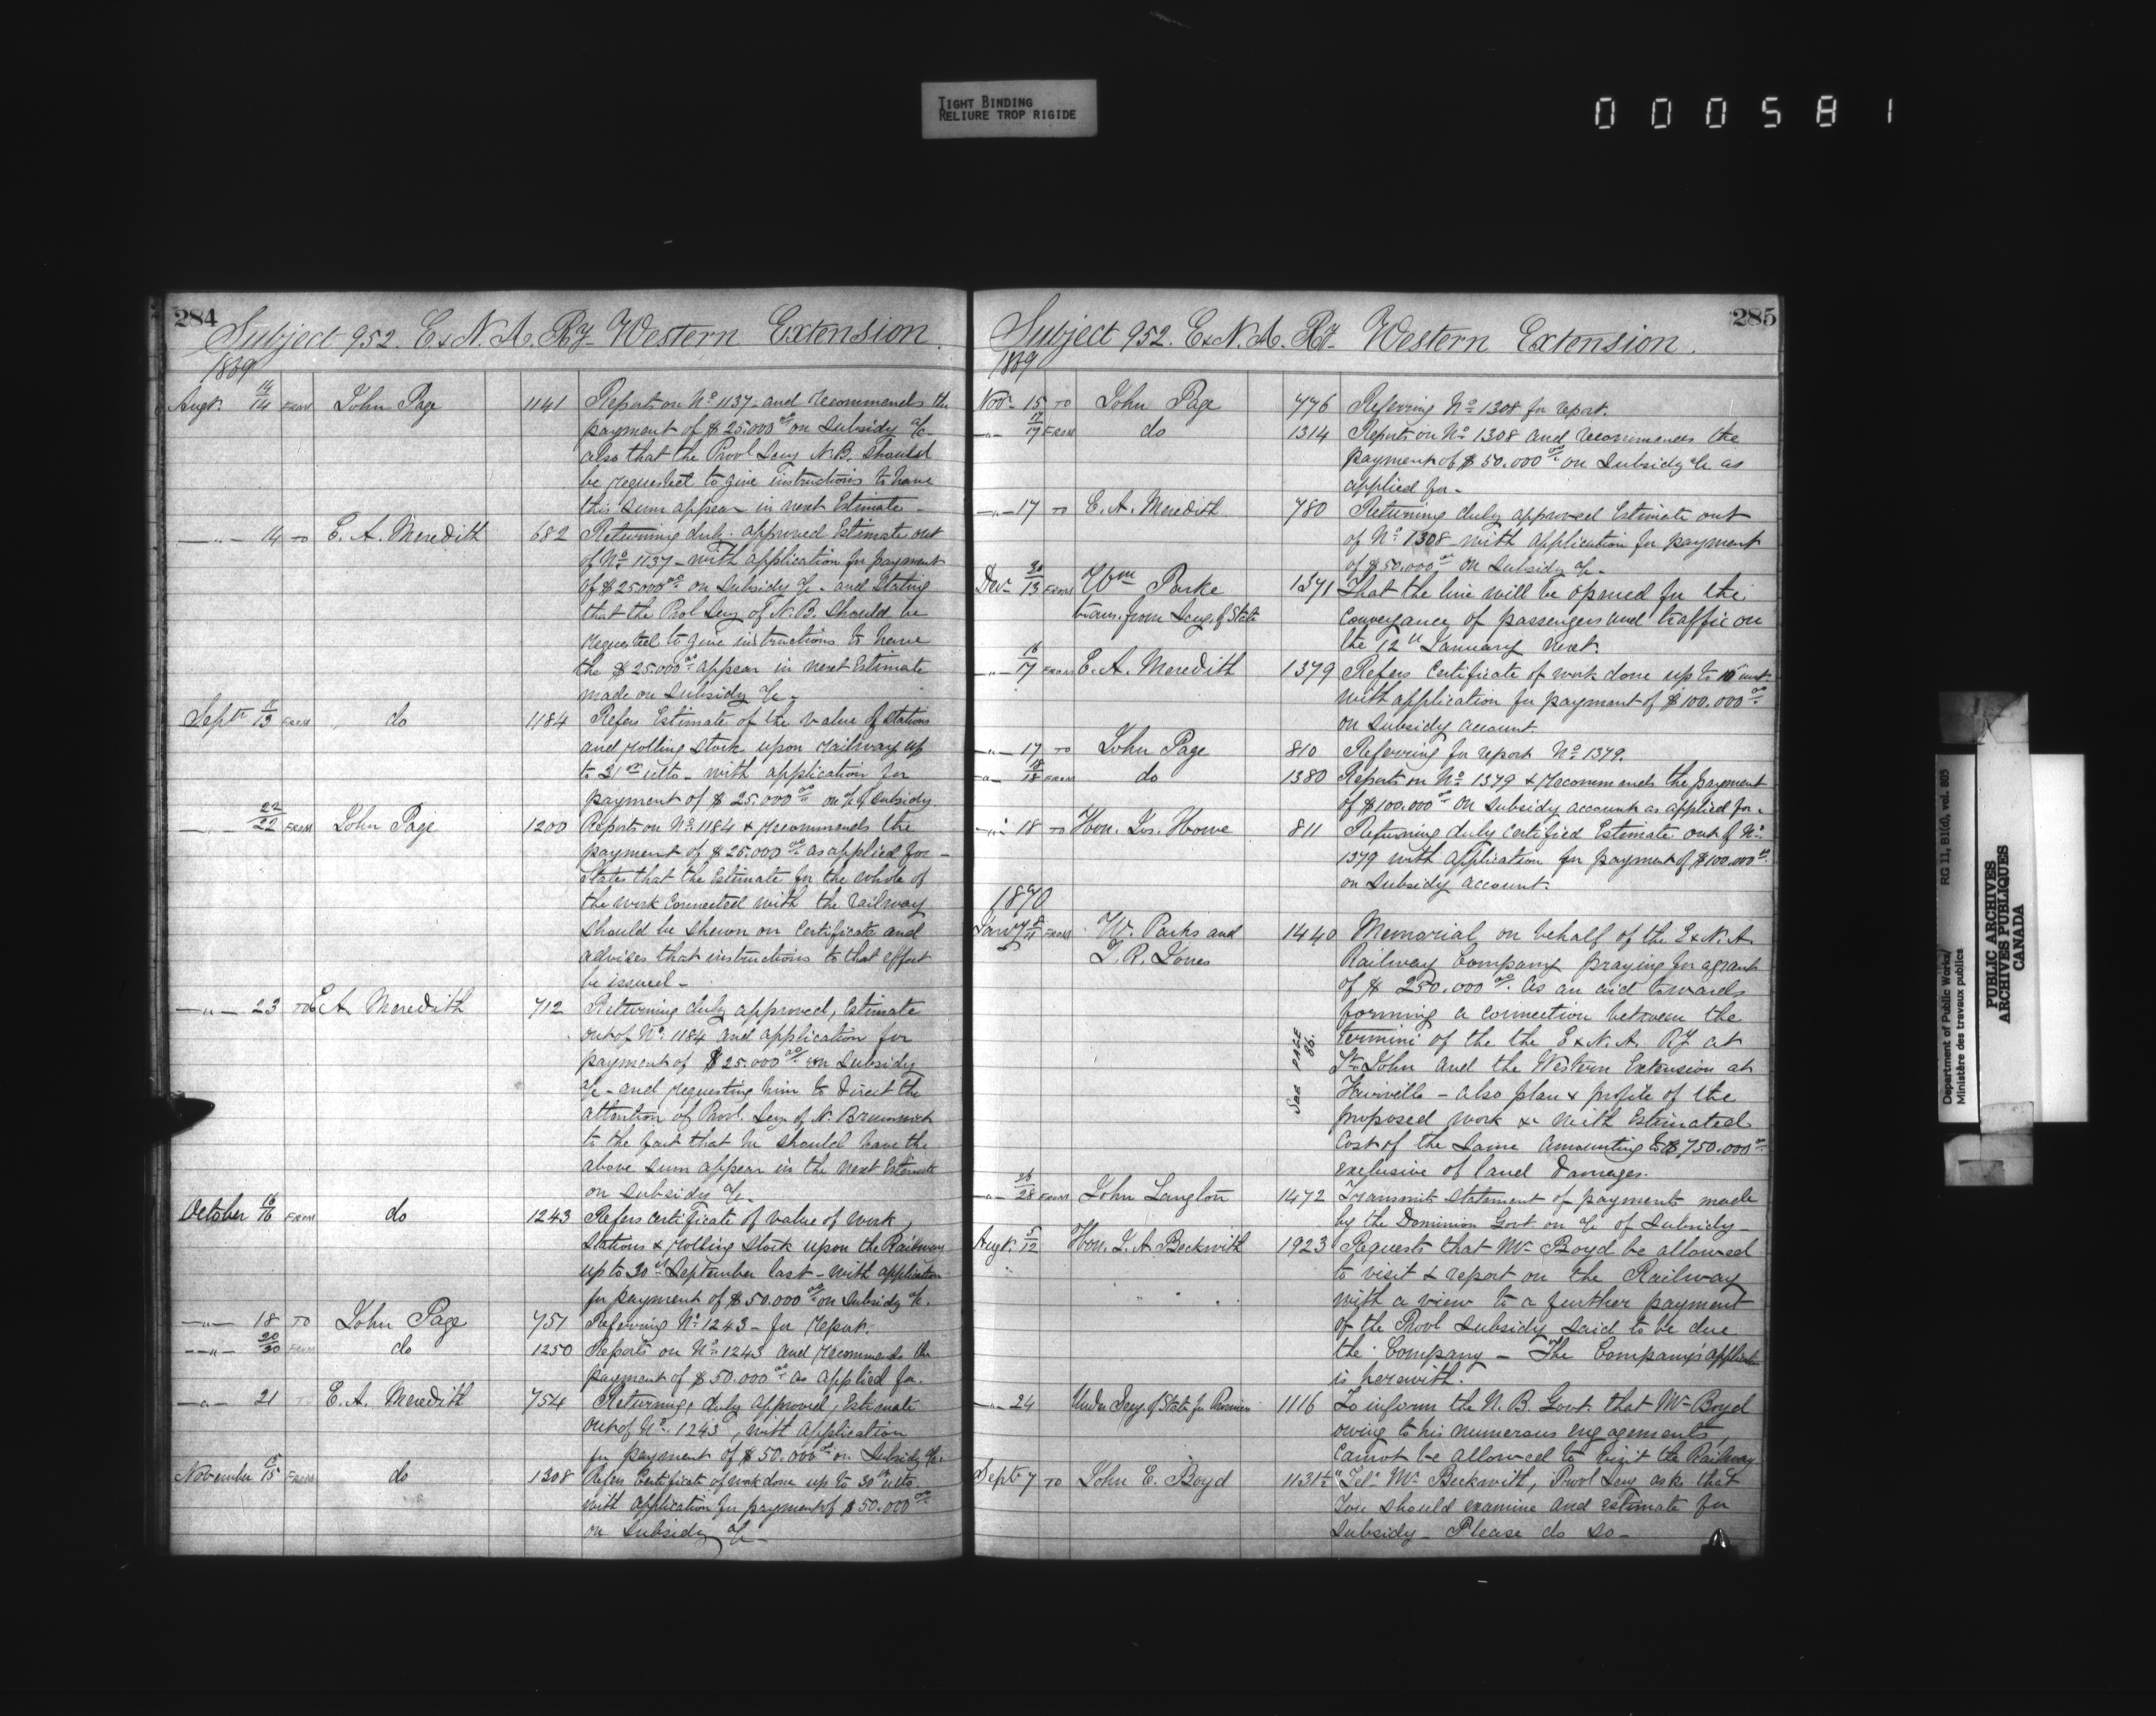 TIGHT BINDING
RELIURE TROP RIGIDE
000581
284
Subject 952. E & N. A. Ry. Western Extension.
1869
Augt. 14/14 FROM John Page 1141 Reports on No. 1137 - and recommends the
payment of $25.000 00/ on Subsidy a/c
also that the Provl Secy N.B. should
be requested to give instructions to have
this sum appear in next Estimate -
— " — 14 TO E. A. Meredith 682 Returning duly approved Estimate out
of No. 1137 - with application for payment
of $25000 00/ on Subsidy a/c - and stating
that the Pro Secy of N.B. should be
requested to give instructions to have
the $25.000 00/ appear in next Estimate
made on Subsidy a/c -
Septr 13 FROM do 1184 Refers Estimate of the value of stations
and rolling stock upon railway up
to 31st ulto - with application for
payment of $25.000 00/ on a/c of Subsidy
— " — 22/22 FROM John Page 1200 Reports on No. 1184 & recommends the
payment of $25.000 00/ as applied for -
States that the Estimate for the whole of
the work connected with the railway
should be shewn on Certificate and
advises that instructions to that effect
be issued -
— " — 23 TO E. A. Meredith 712 Returning duly approved, Estimate
out of No. 1184 and application for
payment of $25.000 00/ on Subsidy
a/c - and requesting him to direct the
attention of Provl. Secy of N. Brunswick
to the fact that he should have the
above sum appear in the next Estimate
on Subsidy a/c -
October 16/16 FROM do 1243 Refers certificate of value of work,
stations & rolling stock upon the Railway
up to 30th September last - with application
for payment of $50.000 00/ on Subsidy a/c.
— " — 18 TO John Page 751 Referring No. 1243 - for report.
— " — 20/30 FROM do 1250 Reports on No. 1243 and recommends the
payment of $50.000 00/ as applied for.
— " — 21 E. A. Meredith 754 Returning duly approved, Estimate
out of No. 1243, with application
for payment of $50.000 00/ on Subsidy a/c.
November 15 FROM do 1308 Refers Certificate of work done up to 30th ulto
with application for payment of $50.000 00/
on Subsidy a/c -
285
Subject 952. E & N. A. Ry. Western Extension.
1869
Novr 15 TO John Page 776 Referring No. 1308 for report.
— " — 17/17 FROM do 1314 Reports on No. 1308 and recommends the
payment of $50.000 00/ on Subsidy a/c as
applied for -
— " — 17 TO E. A. Meredith 780 Returning duly approved Estimate out
of No. 1308 with application for payment
of $50.000 00/ on Subsidy a/c -
Decr 30/13 FROM Wm Parke 1371 That the line will be opened for the
trans. from Secy. of State conveyance of passengers and traffic on
the 12th January next.
— " — 16/17 FROM E. A. Meredith 1379 Refers Certificate of work done up to 10th inst
with application for payment of $100.000 00/
on Subsidy account.
— " — 17 TO John Page 810 Referring for report No. 1379.
— " — 18/18 FROM do 1380 Reports on No. 1379 & recommends the payment
of $100.000 00/ on Subsidy account as applied for.
— " — 18 TO Hon. Jos. Howe 811 Returning duly certified Estimate out of No.
1379 with application for payment of $100.000 00/
on Subsidy account.
1870
Jany 8/11 FROM W. Parks and 1440 Memorial on behalf of the E & N. A.
T. R. Jones Railway Company praying for a grant
of $250.000 00/ as an aid towards
forming a connection between the
termini of the the E & N. A. Ry at
St. John and the Western Extension at
Fairville - also plan & profile of the
proposed work & with Estimated
Cost of the same amounting to $750.000 00/
exclusive of land damages.
SEE PAGE
86.
— " — 26/28 FROM John Langton 1472 Transmits statement of payments made
by the Dominion Govt. on a/c of Subsidy -
Augt. 5/12 Hon. J. A. Beckwith 1923 Requests that Mr Boyd be allowed
to visit & report on the Railway
with a view to a further payment
of the Provl subsidy said to be due
the Company - The Company's application
is herewith.
— " — 24 Under Secy. of State for Provinces 1116 To inform the N. B. Govt. that Mr Boyd
owing to his numerous engagements,
cannot be allowed to visit the Railway.
Septr 7 TO John E. Boyd 1131½ "Tel" Mr Beckwith, Provl Secy asks that
You should examine and estimate for
subsidy - Please do so -
Department of Public Works/
Ministère des travaux publics
RG 11, B1(d), vol. 805
PUBLIC ARCHIVES
ARCHIVES PUBLIQUES
CANADA